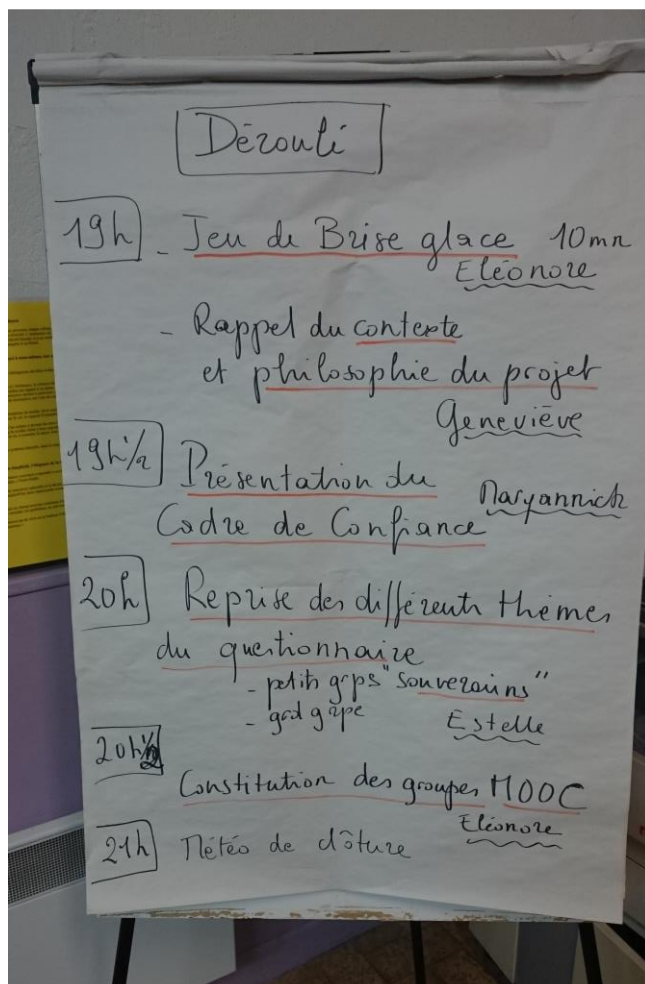 Déroulé
19h - Jeu de Brise glace 10mn
Eléonore
- Rappel du contexte
et philosophie du projet
Geneviève
19h1/2 Présentation du
Maryannick
Cadre de Confiance
20h Reprise des différents thèmes
du questionnaire
- petits grps "souverains"
- grd grpe
Estelle
20h1/2
Constitution des groupes MOOC
Eléonore
21h Météo de clôture